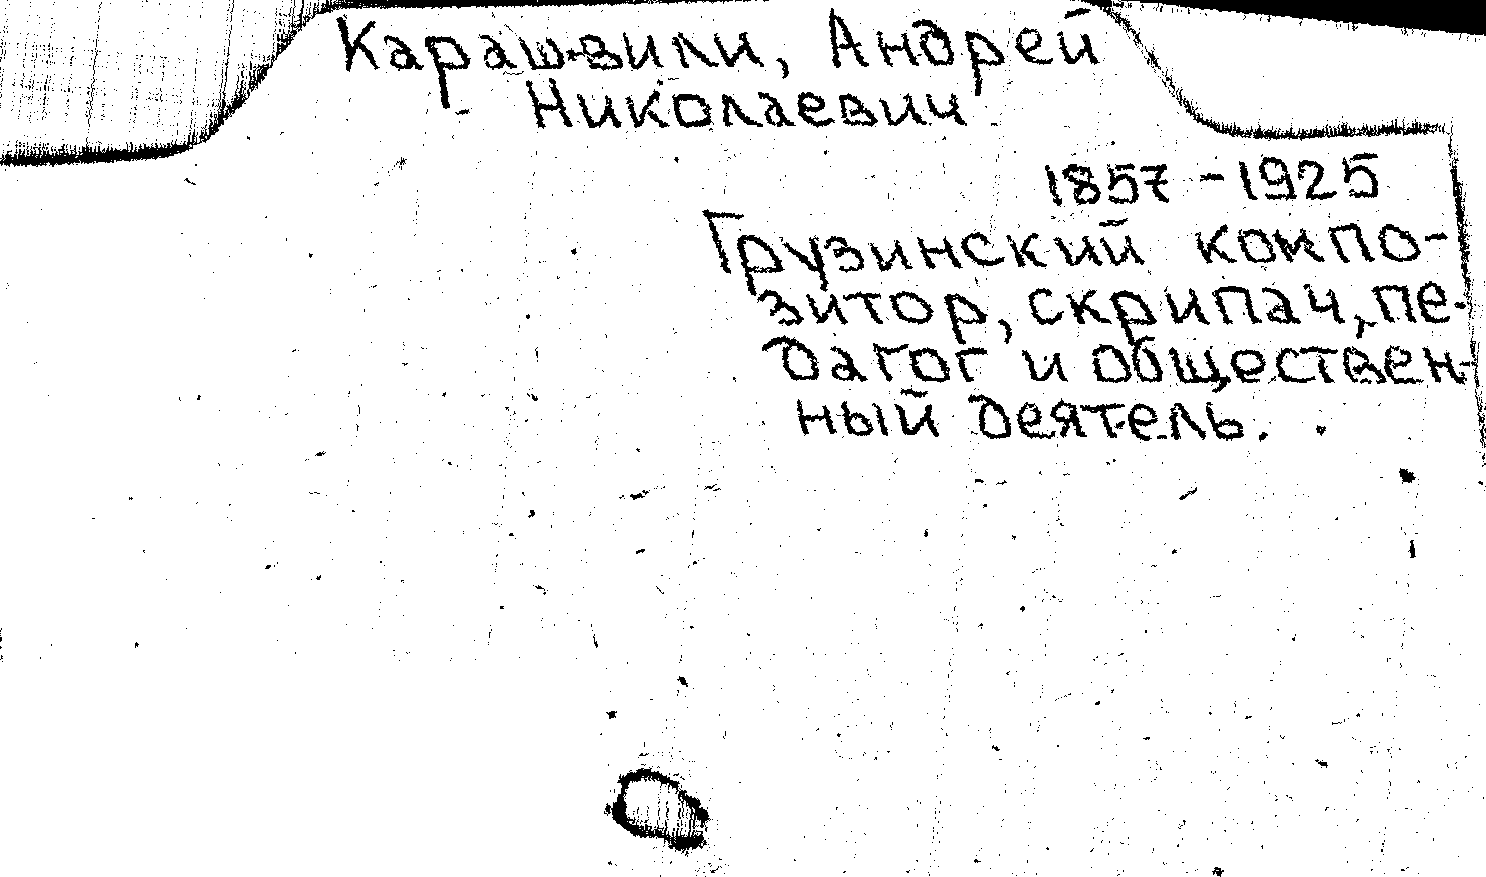 Карашвили, Андрей
Николаевич
1857 - 1925
Грузинский компо-
зитор, скрипач, пе-
дагог и обществен-
ный деятель.